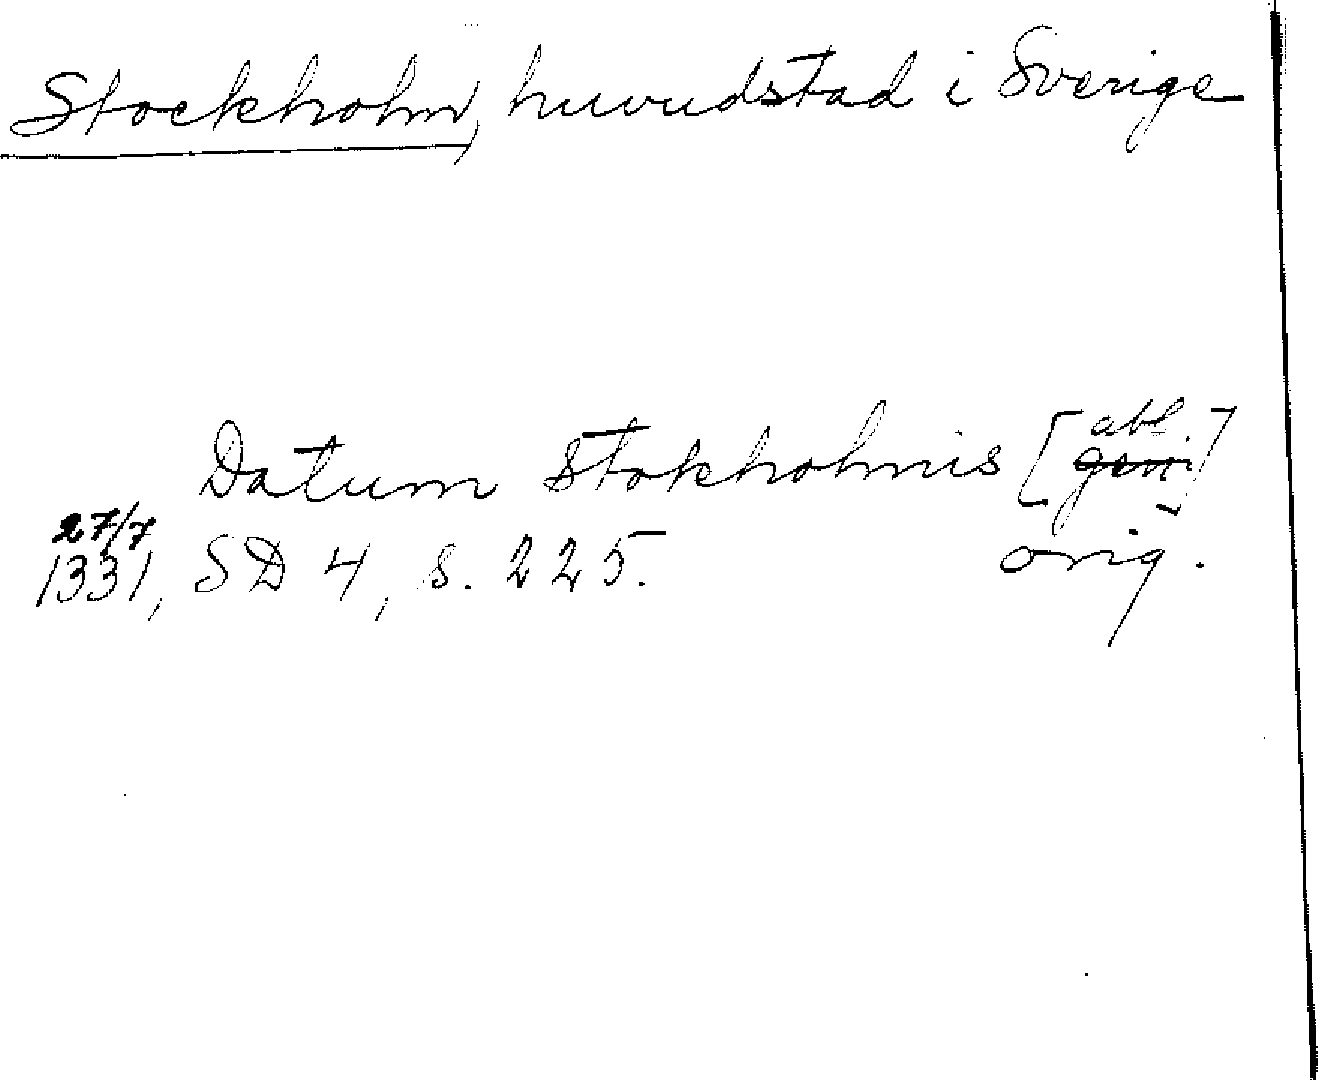 Stockholm, huvudstad i Sverige
Datum Stokholmis [abl.]
27/7
1331, SD 4, s. 225. orig.